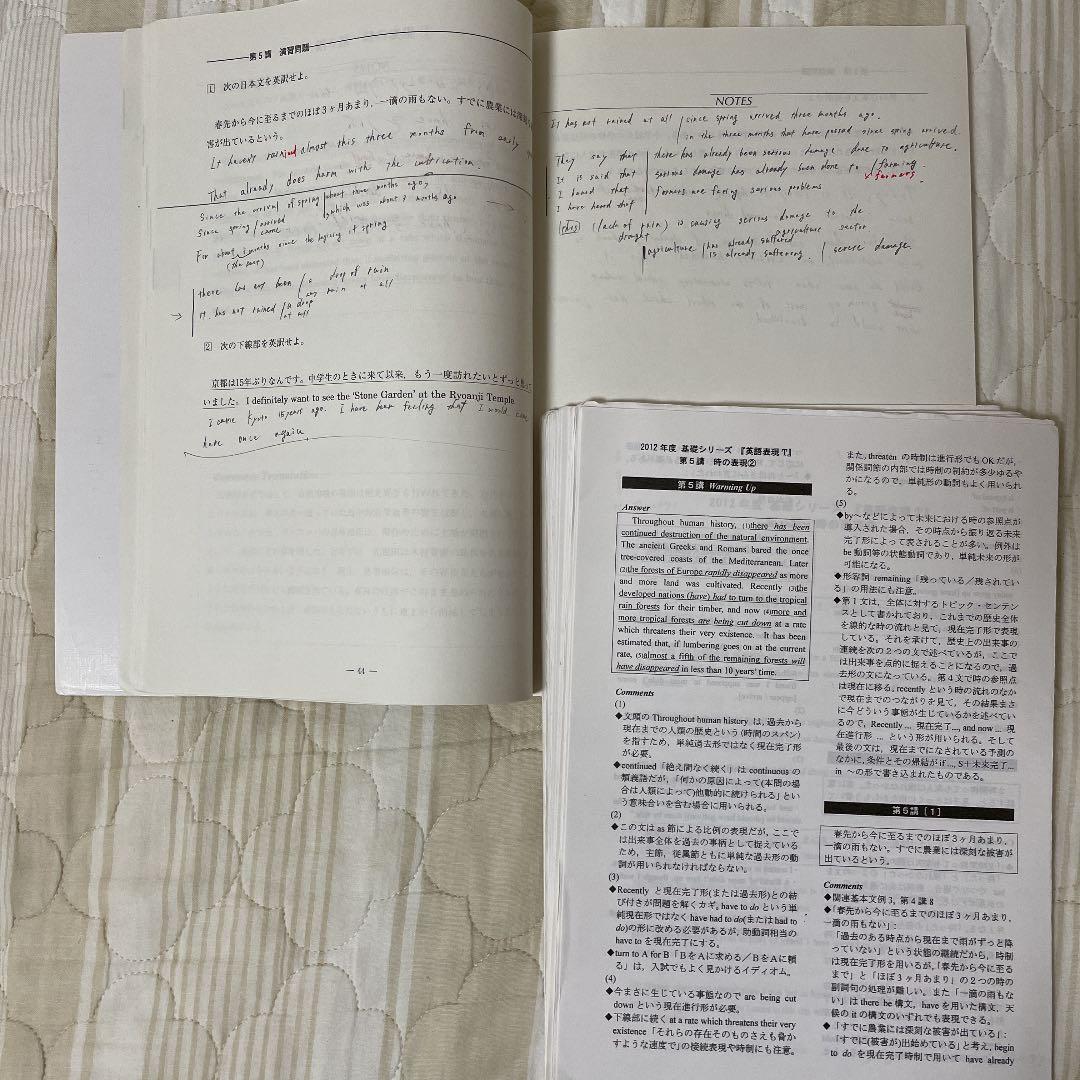 第5講 演習問題
1 次の日本文を英訳せよ。
春先から今に至るまでのほぼ3ヶ月あまり,一滴の雨もない。すでに農業には深刻
害が出ているという。
It haven't rained almost this three months from early
That already does harm with the cultivation.
Since the arrival of spring about three months ago,
which was about 3 months ago
Since spring arrived
came
For about 3 months since the begining of spring
(the past)
there has not been a drop of rain
any rain at all
It has not rained a drop
at all
2 次の下線部を英訳せよ。
京都は15年ぶりなんです。中学生のときに来て以来,もう一度訪れたいとずっと思って
いました。I definitely want to see the 'Stone Garden' at the Ryoanji Temple.
I came Kyoto 15 years ago. I have been feeling that I would come
here once again
― 44 ―
NOTES
It has not rained at all since spring arrived three months ago.
in the three months that have passed since spring arrived.
They say that there has already been serious damage done to agriculture.
It is said that serious damage has already been done to farming
I heard that farmers are facing serious problems × farmers
I have heard that
this (lack of rain) is causing serious damage to the
agriculture sector.
agriculture has already suffered severe damage.
is already suffering
2012年度 基礎シリーズ 『英語表現T』
第5講 時の表現②
第5講 Warming Up
Answer
Throughout human history, (1)there has been
continued destruction of the natural environment.
The ancient Greeks and Romans bared the once
tree-covered coasts of the Mediterranean. Later
(2)the forests of Europe rapidly disappeared as more
and more land was cultivated. Recently (3)the
developed nations (have) had to turn to the tropical
rain forests for their timber, and now (4)more and
more tropical forests are being cut down at a rate
which threatens their very existence. It has been
estimated that, if lumbering goes on at the current
rate, (5)almost a fifth of the remaining forests will
have disappeared in less than 10 years' time.
Comments
(1)
◆文頭の Throughout human history は,過去から
現在までの人類の歴史という(時間のスパン)
を指すため,単純過去形ではなく現在完了形
が必要。
◆continued「絶え間なく続く」は continuous の
類義語だが,「何かの原因によって(本問の場
合は人類によって)他動的に続けられる」とい
う意味合いを含む場合に用いられる。
(2)
◆この文は as 節による比例の表現だが,ここで
は出来事全体を過去の事柄として捉えている
ため,主節,従属節ともに単純な過去形の動
詞が用いられなければならない。
(3)
◆Recently と現在完了形(または過去形)との結
び付きが問題を解くカギ。have to do という単
純現在形ではなく have had to do(または had to
do)の形に改める必要があるが,助動詞相当の
have to を現在完了にする。
◆turn to A for B「BをAに求める/BをAに頼
る」は,入試でもよく見かけるイディオム。
(4)
◆今まさに生じている事態なので are being cut
down という現在進行形が必要。
◆下線部に続く at a rate which threatens their very
existence「それらの存在そのものさえも脅か
すような速度で」の接続表現や時制にも注意。
また,threaten の時制は進行形でもOKだが,
関係詞節の内部では時制の制約が多少ゆるや
かになるので,単純形の動詞もよく用いられ
る。
(5)
◆by~などによって未来における時の参照点が
導入された場合,その時点から振り返る未来
完了形によって表されることが多い。例外は
be 動詞等の状態動詞であり,単純未来の形が
可能になる。
◆形容詞 remaining「残っている/残されてい
る」の用法にも注意。
◆第1文は,全体に対するトピック・センテン
スとして書かれており,これまでの歴史全体
を線的な時の流れと見て,現在完了形で表現
している。それを承けて,歴史上の出来事の
連続を次の2つの文で述べているが,ここで
は出来事を点的に捉えることになるので,過
去形の文になっている。第4文で時の参照点
は現在に移る。recently という時の流れのなか
で現在までのつながりを見て,その結果まさ
に今どういう事態が生じているかを述べてい
るので,Recently ... 現在完了..., and now ... 現
在進行形 ... という形が用いられる。そして
最後の文は,現在までになされている予測の
なかに,条件とその帰結が if ..., S+未来完了...
in ~の形で書き込まれたものである。
第5講[1]
春先から今に至るまでのほぼ3ヶ月あまり,
一滴の雨もない。すでに農業には深刻な被害が
出ているという。
Comments
◆関連基本文例3,第4講8
◆「春先から今に至るまでのほぼ3ヶ月あまり,
一滴の雨もない」:
「過去のある時点から現在まで雨がずっと降
っていない」という状態の継続だから,時制
は現在完了形を用いるが,「春先から今に至る
まで」と「ほぼ3ヶ月あまり」の2つの時の
副詞句の処理が難しい。また「一滴の雨もな
い」は there be 構文,have を用いた構文,天
候の it の構文のいずれでも表現できる。
◆「すでに農業には深刻な被害が出ている」:
「すでに(被害が)出始めている」と考え,begin
to do を現在完了時制で用いて have already